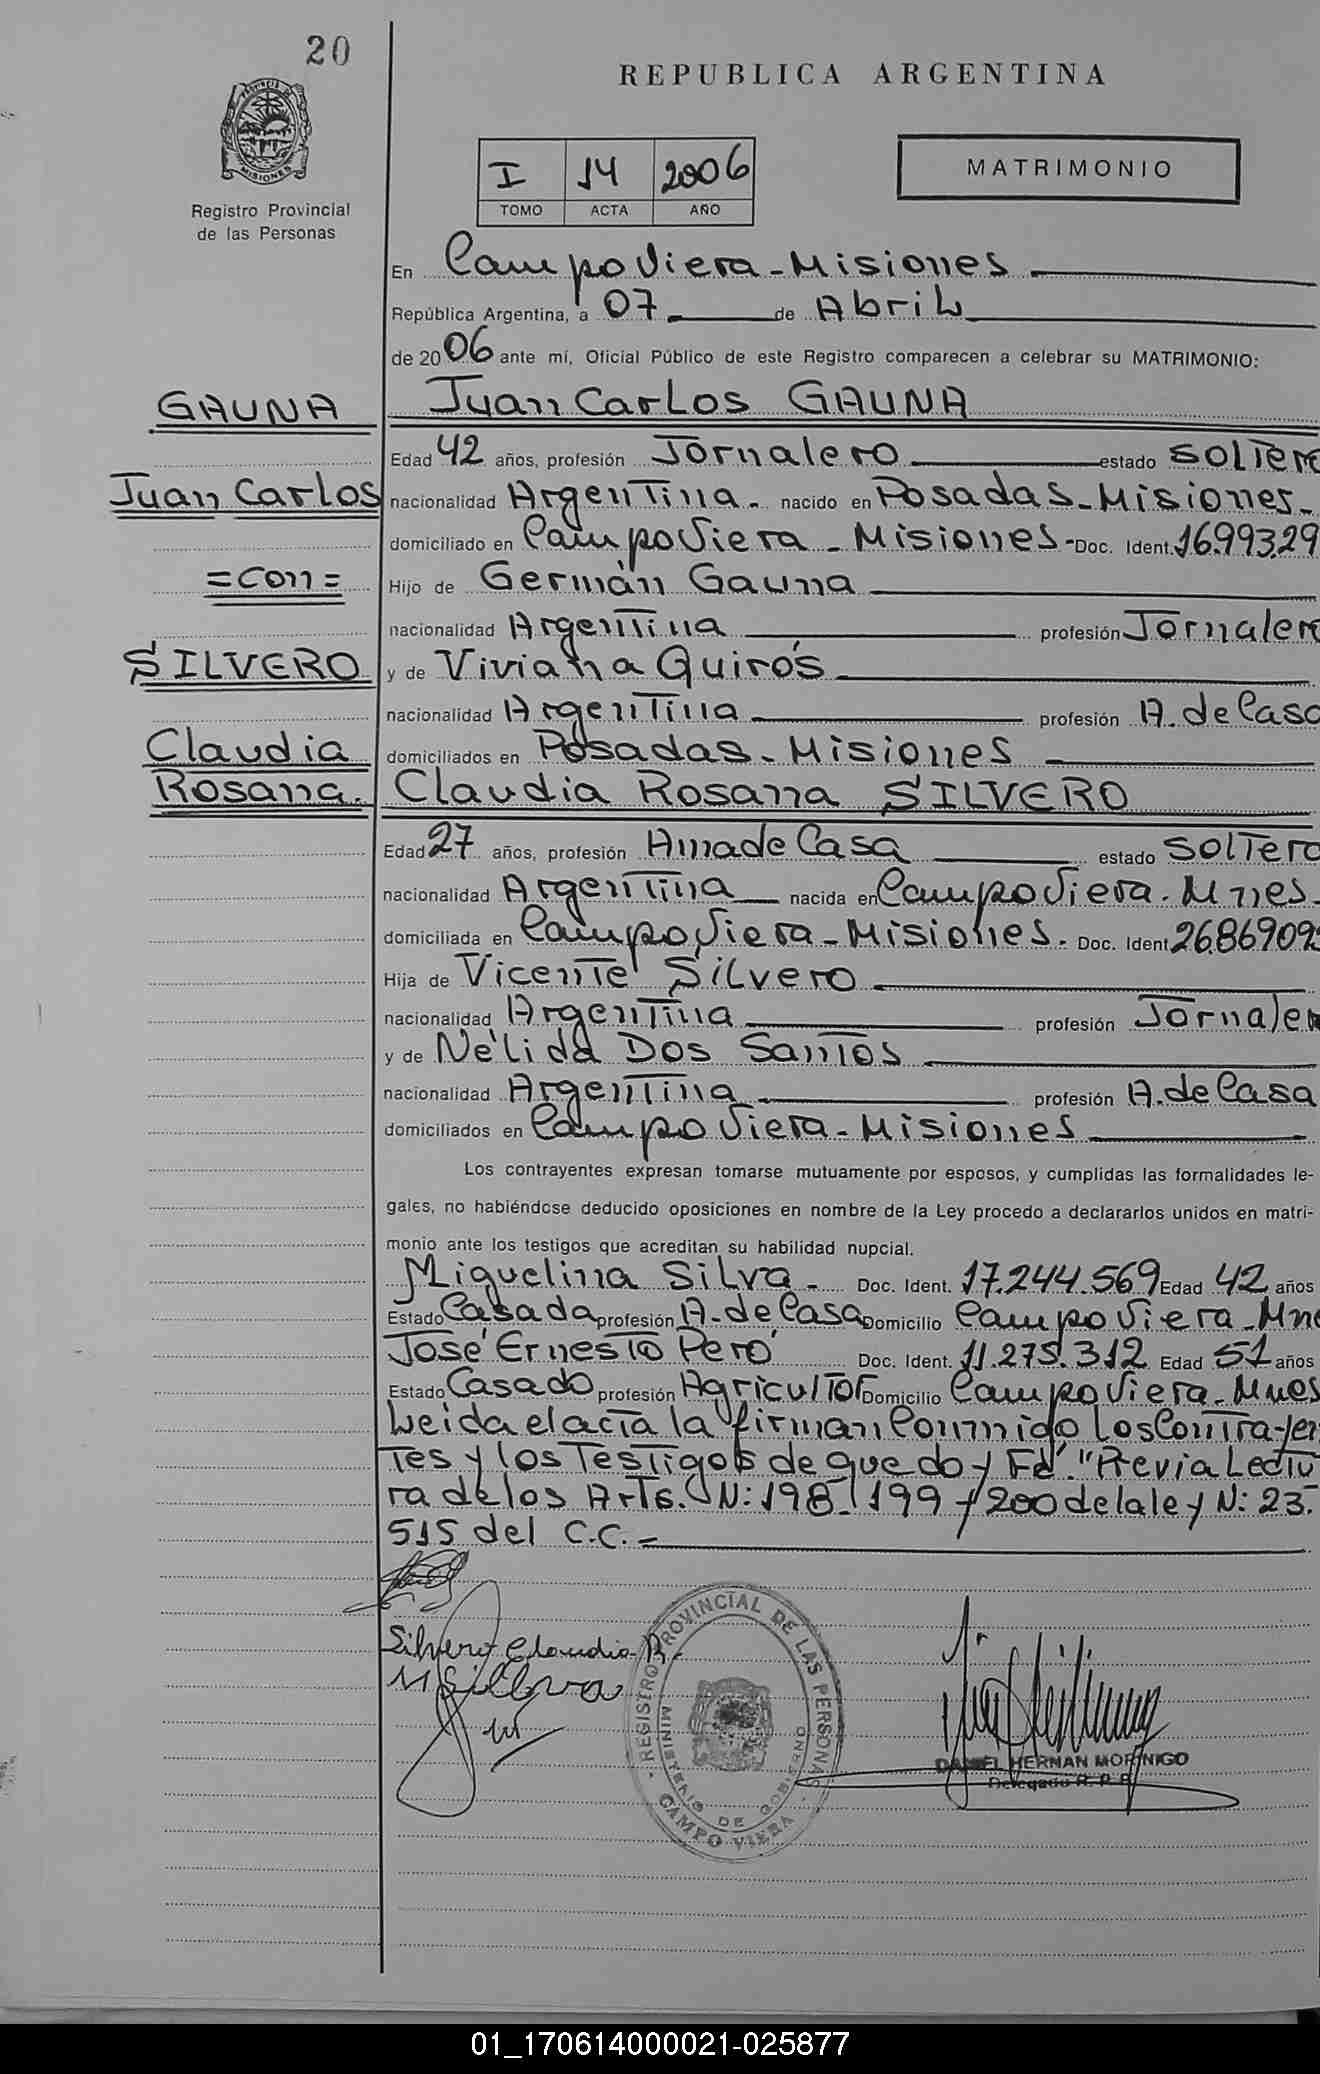 20
REPUBLICA ARGENTINA
PROVINCIA DE
MISIONES
Registro Provincial
de las Personas
I 14 2006
TOMO ACTA AÑO
MATRIMONIO
En Campo Viera - Misiones
República Argentina, a 07 de Abril
de 2006 ante mí, Oficial Público de este Registro comparecen a celebrar su MATRIMONIO:
GAUNA
Juan Carlos
=Con=
SILVERO
Claudia
Rosana.
Juan Carlos GAUNA
Edad 42 años, profesión Jornalero estado Solter
nacionalidad Argentina. nacido en Posadas - Misiones.
domiciliado en Campo Viera - Misiones - Doc. Ident. 16.993.29
Hijo de Germán Gauna
nacionalidad Argentina profesión Jornaler
y de Viviana Quirós
nacionalidad Argentina profesión A. de Casa
domiciliados en Posadas - Misiones
Claudia Rosana SILVERO
Edad 27 años, profesión Ama de Casa estado Soltera
nacionalidad Argentina nacida en Campo Viera. Mnes.
domiciliada en Campo Viera - Misiones. Doc. Ident. 26.869.09
Hija de Vicente Silvero
nacionalidad Argentina profesión Jornaler
y de Nélida Dos Santos
nacionalidad Argentina profesión A. de Casa
domiciliados en Campo Viera - Misiones
Los contrayentes expresan tomarse mutuamente por esposos, y cumplidas las formalidades le-
gales, no habiéndose deducido oposiciones en nombre de la Ley procedo a declararlos unidos en matri-
monio ante los testigos que acreditan su habilidad nupcial.
Miguelina Silva - Doc. Ident. 17.244.569 Edad 42 años
Estado Casada profesión A. de Casa Domicilio Campo Viera - Mne
José Ernesto Peró Doc. Ident. 11.275.312 Edad 51 años
Estado Casado profesión Agricultor Domicilio Campo Viera - Mnes
Leida el acta la firman Conmigo Los Contrayen
tes y los Testigos de que doy Fé. "Previa Lectu
ra de los Arts. N: 198 - 199 y 200 de la ley N: 23.
515 del C.C. -
Silvero Claudia R.
M Sillva
REGISTRO PROVINCIAL DE LAS PERSONAS
MINISTERIO DE GOBIERNO
CAMPO VIERA
DANIEL HERNAN MORINIGO
Delegado R. P. P.
01_170614000021-025877